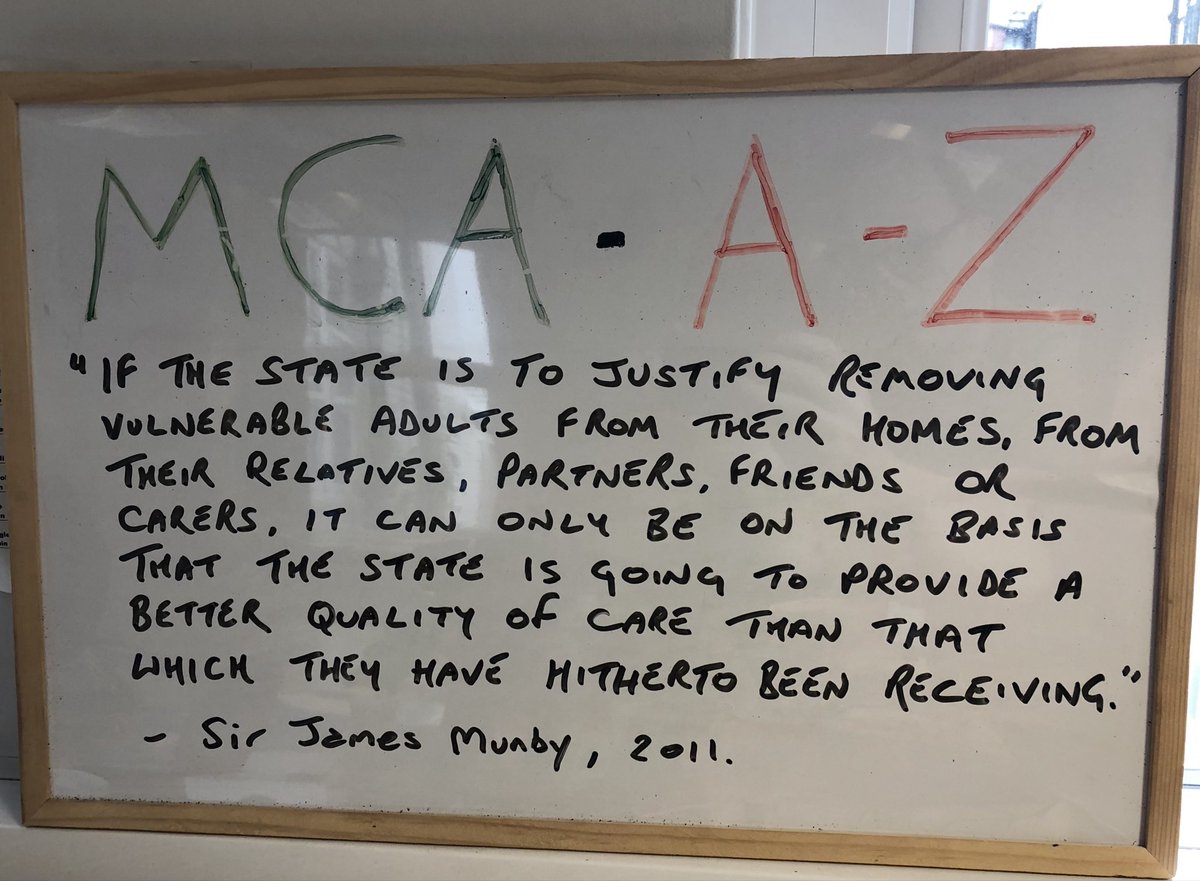 MCA - A-Z
"IF THE STATE IS TO JUSTIFY REMOVING
VULNERABLE ADULTS FROM THEIR HOMES, FROM
THEIR RELATIVES, PARTNERS, FRIENDS OR
CARERS, IT CAN ONLY BE ON THE BASIS
THAT THE STATE IS GOING TO PROVIDE A
BETTER QUALITY OF CARE THAN THAT
WHICH THEY HAVE HITHERTO BEEN RECEIVING."
- Sir James Munby, 2011.